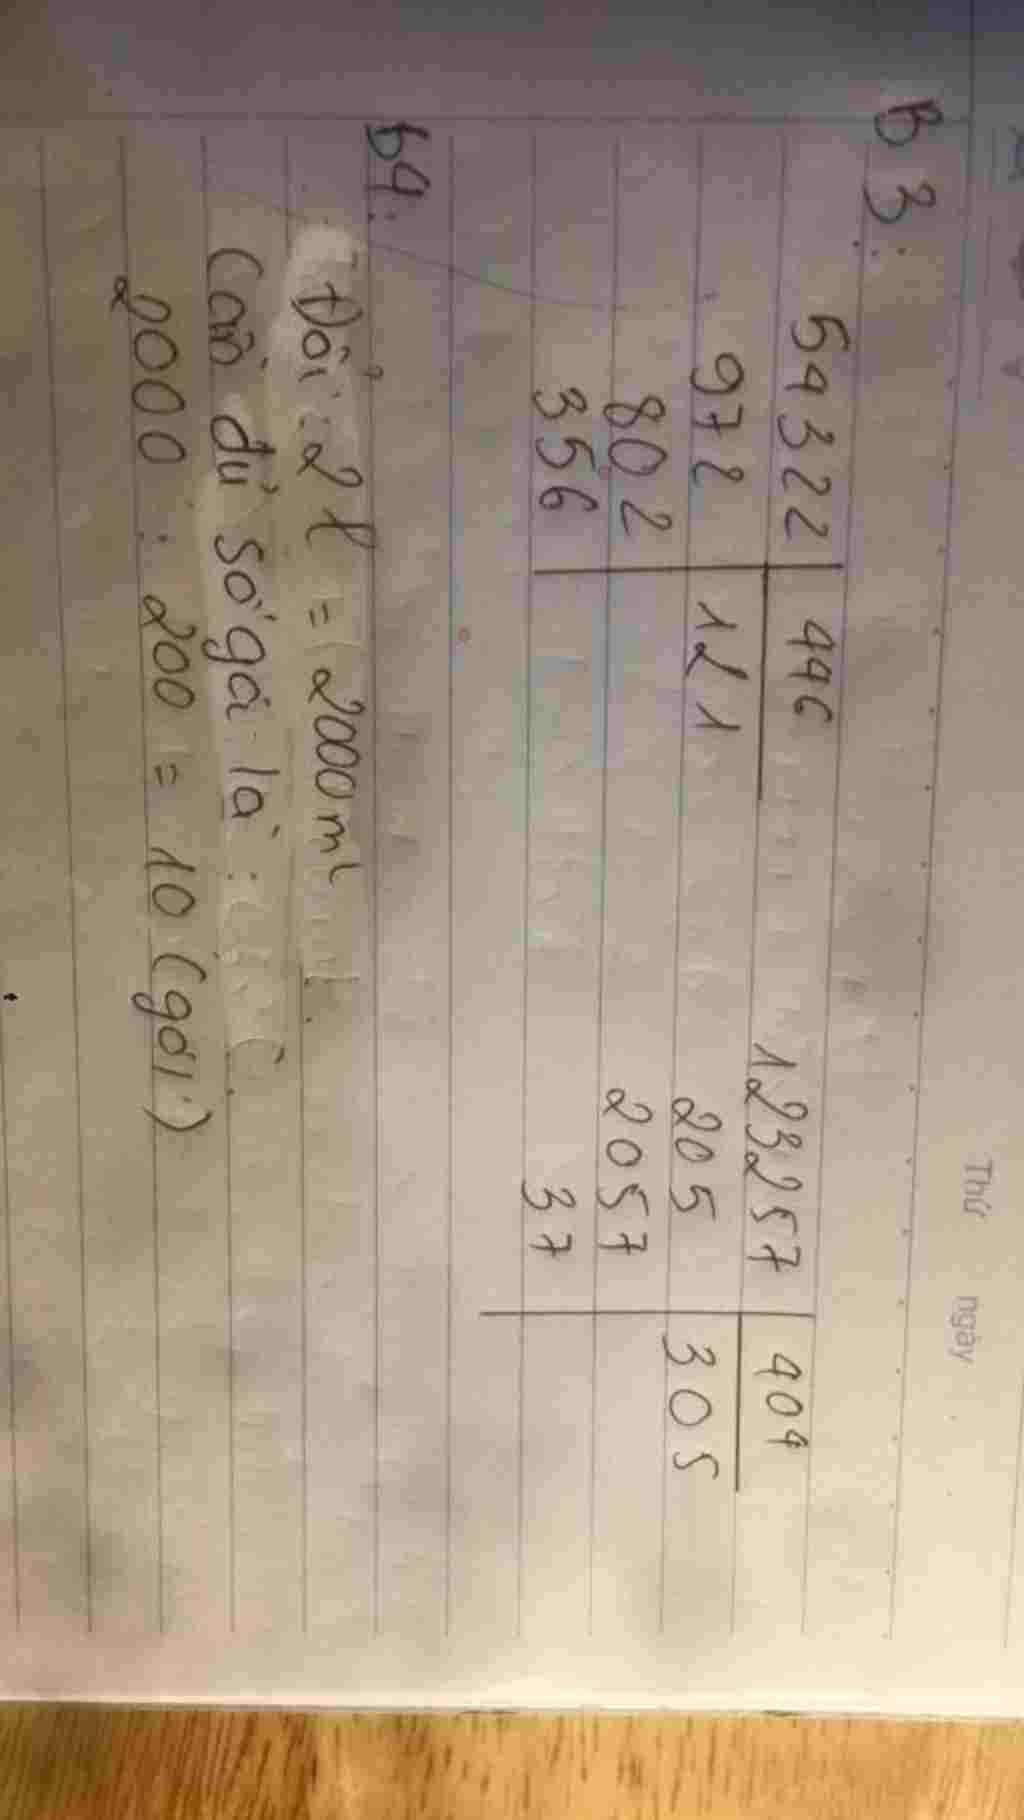 Thứ ngày
B3:
54322 446 123257 404
972 121 205 305
802 2057
356 37
b4:
Đổi: 2l = 2000ml
Cần đủ số gói là:
2000 : 200 = 10 (gói)